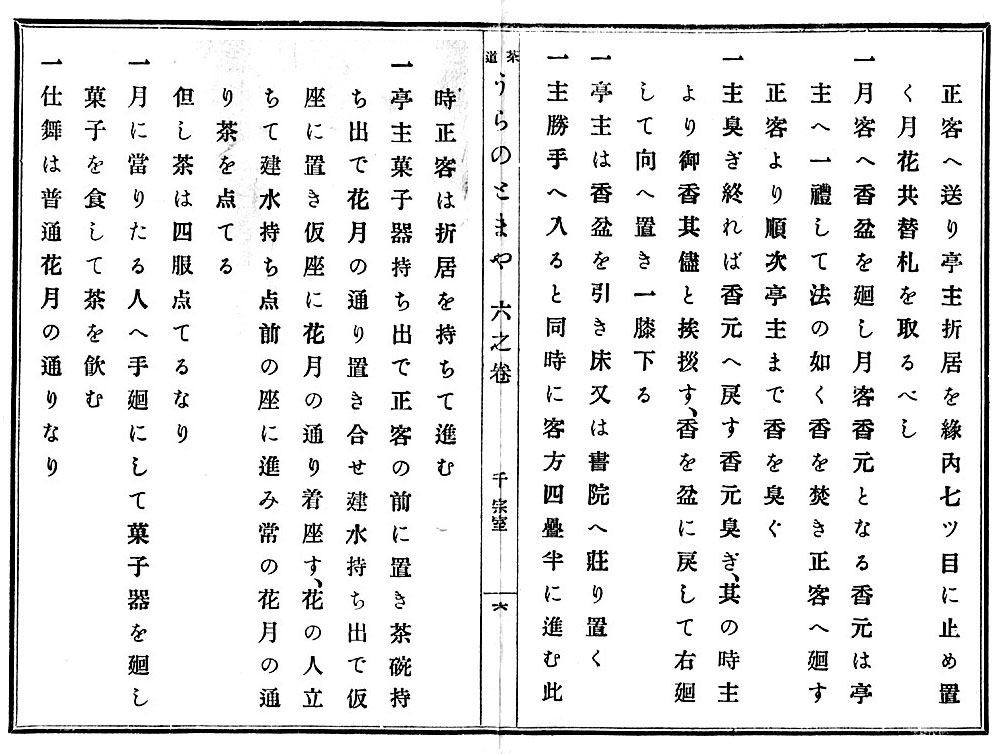 正客へ送り亭主折居を緣內七ツ目に止め置
く月花共替札を取るべし
一月客へ香盆を廻し月客香元となる香元は亭
主へ一禮して法の如く香を焚き正客へ廻す
正客より順次亭主まで香を臭ぐ
一主臭ぎ終れば香元へ戾す香元臭ぎ、其の時主
より御香其儘と挨拶す、香を盆に戾して右廻
して向へ置き一膝下る
一亭主は香盆を引き床又は書院へ莊り置く
一主勝手へ入ると同時に客方四疊半に進む此
茶道
うらのとまや 六之卷
千宗室
六
時正客は折居を持ちて進む
一亭主菓子器持ち出で正客の前に置き茶碗持
ち出で花月の通り置き合せ建水持ち出で仮
座に置き仮座に花月の通り着座す、花の人立
ちて建水持ち点前の座に進み常の花月の通
り茶を点てる
但し茶は四服点てるなり
一月に當りたる人へ手廻にして菓子器を廻し
菓子を食して茶を飮む
一仕舞は普通花月の通りなり